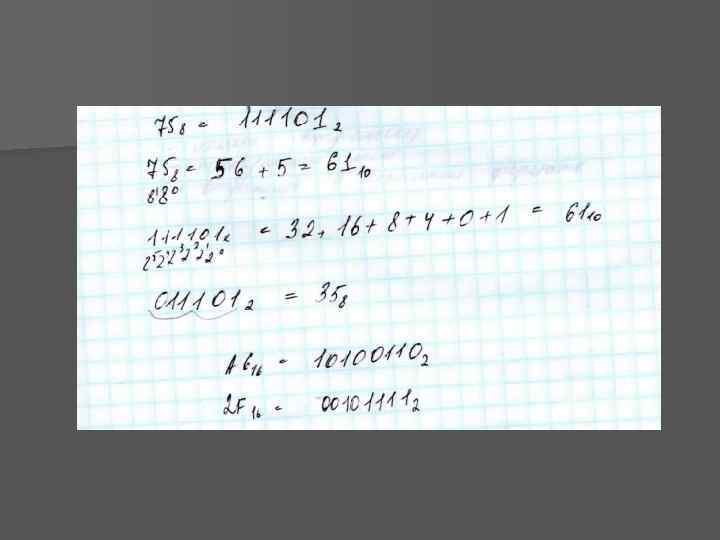 75₈ = 111101₂
75₈ = 56 + 5 = 61₁₀
8¹8⁰
111101₂ = 32 + 16 + 8 + 4 + 0 + 1 = 61₁₀
2⁵2⁴2³2²2¹2⁰
011101₂ = 35₈
A6₁₆ = 10100110₂
2F₁₆ = 00101111₂